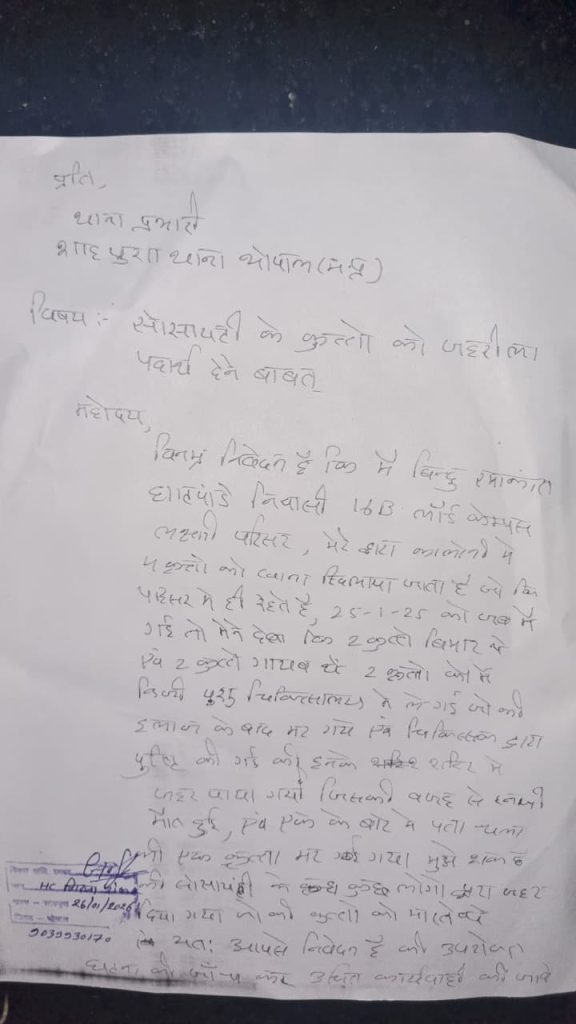 प्रति,
थाना प्रभारी
शाहपुरा थाना भोपाल (मप्र)
विषय :- सोसायटी के कुत्तो को जहरीला
पदार्थ देने बाबत्
महोदय,
विनम्र निवेदन है कि मै बिन्दु रमाकांत
घाटपांडे निवासी 16B लॉर्ड केम्पस
परिसर, मेरे द्वारा कालोनी मे
4 कुत्तो को खाना खिलाया जाता है जो कि
परिसर मे ही रहते है, 25-1-25 को जब मै
गई तो मैने देखा कि 2 कुत्ते बिमार थे
एवं 2 कुत्ते गायब थे 2 कुत्तो को मै
निजी पशु चिकित्सालय मे ले गई जो की
इलाज के बाद मर गये एवं चिकित्सक द्वारा
पुष्टि की गई की इनके शरिर मे
जहर पाया गया जिसकी वजह से इनकी
मौत हुई, एवं एक के बारे मे पता चला
की एक कुत्ता मर गया मुझे शक है
की सोसायटी के कुछ लोगो द्वारा जहर
दिया गया जो की कुत्तो को मारते थे
अत: आपसे निवेदन है की उपरोक्त
घटना की जाँच कर उचित कार्यवाही की जावे
HC
26/01/2026
9039930170